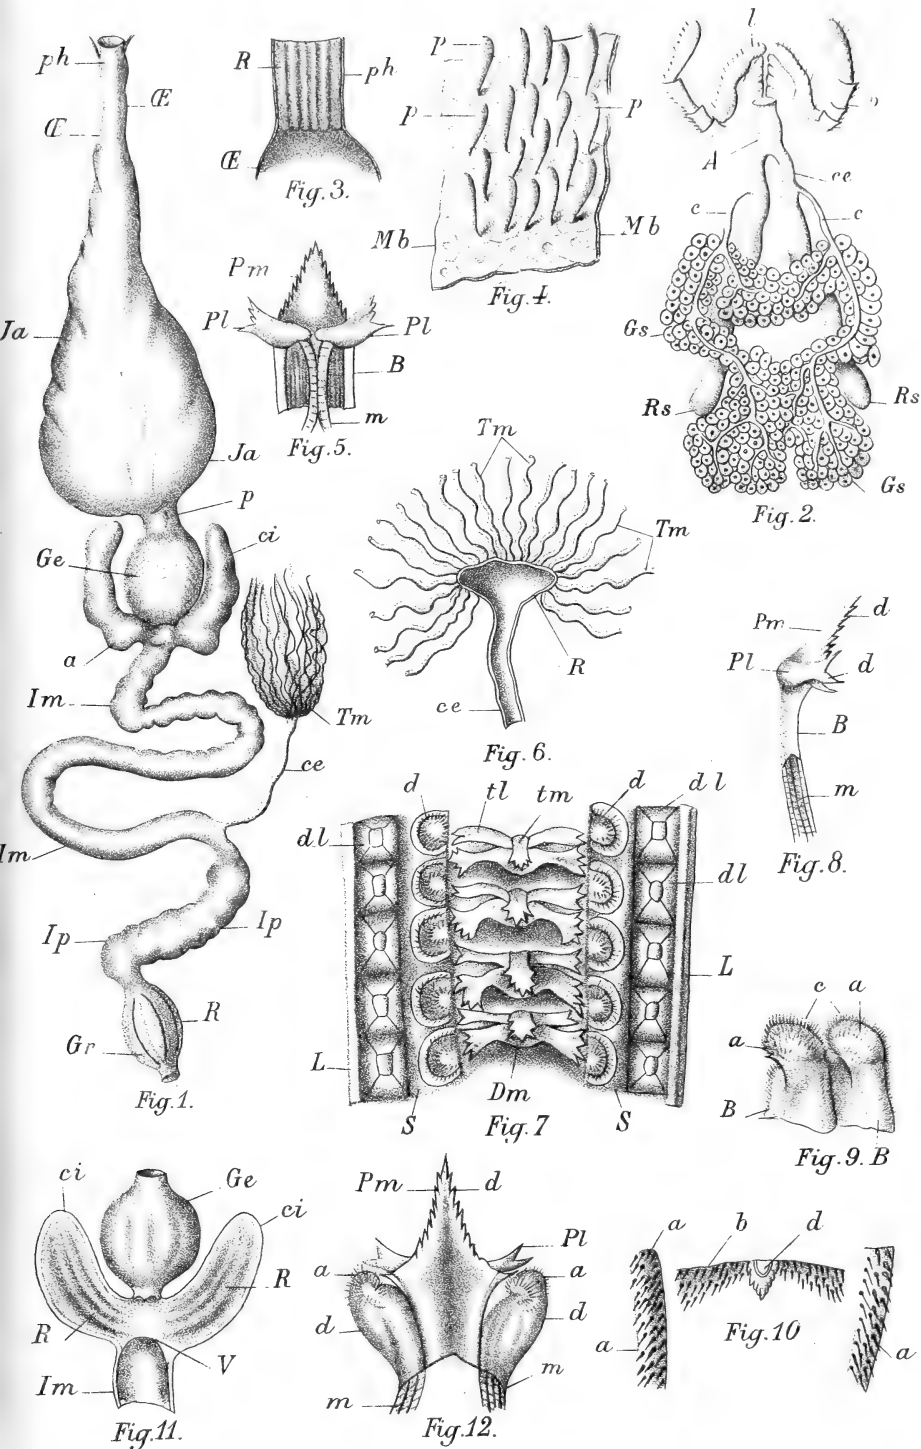 ph
Œ
Œ
Ja
Ja
p
Ge
ci
a
Im
Tm
ce
Im
Ip
Ip
R
Gr
Fig. 1.
R
ph
Œ
Fig. 3.
p
p
p
Mb
Mb
Fig. 4.
l
A
ce
c
c
Gs
Rs
Rs
Gs
Fig. 2.
Pm
Pl
Pl
B
m
Fig. 5.
Tm
Tm
R
ce
Fig. 6.
d
Pm
Pl
d
B
m
Fig. 8.
d
tl
tm
d
dl
dl
dl
L
L
Dm
S
S
Fig. 7
c
a
a
B
Fig. 9. B
ci
Ge
ci
R
R
V
Im
Fig. 11.
Pm
d
Pl
a
a
d
d
m
m
Fig. 12.
a
b
d
Fig. 10
a
a